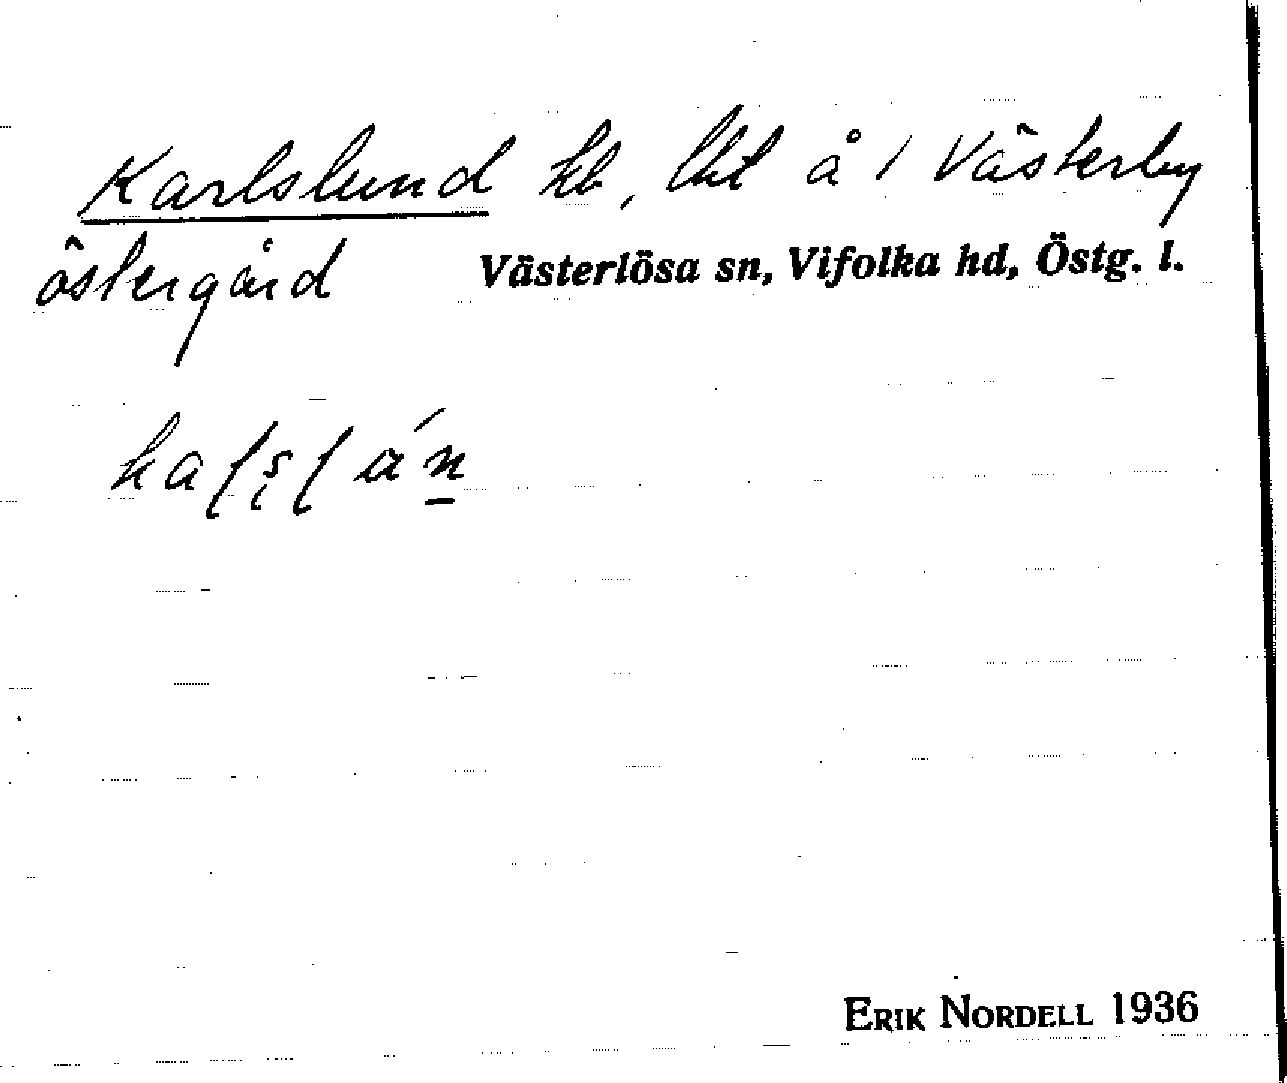 Karlslund hb, lht å 1 Västerby
östergård Västerlösa sn, Vifolka hd, Östg. l.
ERIK NORDELL 1936